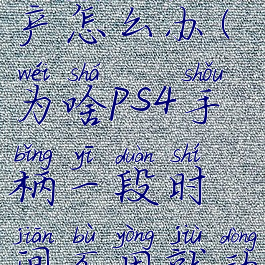 产怎么办(
wéi shá shǒu
为啥PS4手
bǐng yī duàn shí
柄一段时
jiān bù yòng jiù dòng
间不用就动